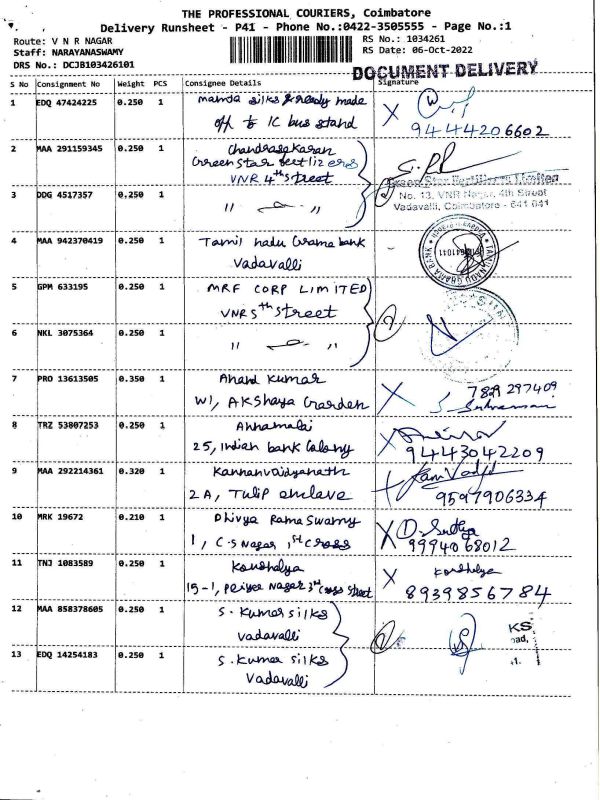 THE PROFESSIONAL COURIERS, Coimbatore
Delivery Runsheet - P41 - Phone No.:0422-3505555 - Page No.:1
Route: V N R NAGAR
RS No.: 1034261
Staff: NARAYANASWAMY
RS Date: 06-Oct-2022
DRS No.: DCJB103426101
DOCUMENT DELIVERY
S No Consignment No Weight PCS Consignee Details Signature
1 EDQ 47424225 0.250 1 silks & ready made
off to IC bus stand
9444206602
2 MAA 291159345 0.250 1 Chandrasekaran
Green Star
VNR 4th Street
3 DDG 4517357 0.250 1 " "
Green Star Fertilizers Limited
No. 13, VNR Nagar, 4th Street
Vadavalli, Coimbatore - 641 041
4 MAA 942370419 0.250 1 Tamil nadu Grama bank
Vadavalli
TAMILNADU GRAMA BANK
5 GPM 633195 0.250 1 MRF CORP LIMITED
VNR 5th street
6 NKL 3075364 0.250 1 " "
7 PRO 13613505 0.350 1 Anand Kumar
W1, Akshaya Garden
789 297409
8 TRZ 53807253 0.250 1 Annamalai
25, Indian bank Colony
9443042209
9 MAA 292214361 0.320 1 Kannanvaidyanath
2A, Tulip enclave
9597906334
10 MRK 19672 0.210 1 Dhivya Ramaswamy
1, C.S Nagar 1st Cross
9994068012
11 TNJ 1083589 0.250 1 Koushalya
15-1, Periya Nagar 3rd Cross Street
8939856784
12 MAA 858378605 0.250 1 S. Kumar silks
Vadavalli
13 EDQ 14254183 0.250 1 S. Kumar silks
Vadavalli